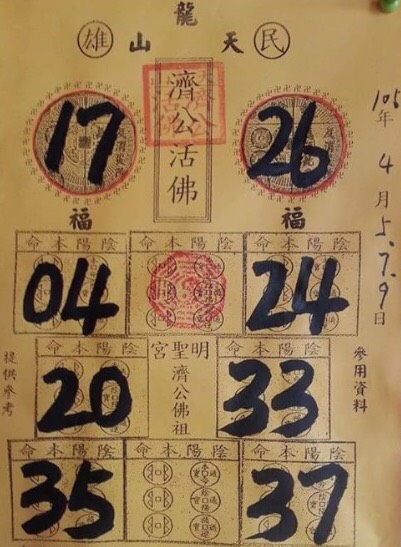 民 天 龍 山 雄
濟公活佛
17
26
105年4月5.7.9日
福
福
陰陽本命
陰陽本命
04
24
明聖宮
濟公佛祖
陰陽本命
陰陽本命
20
33
參用資料
提供參考
陰陽本命
陰陽本命
35
37